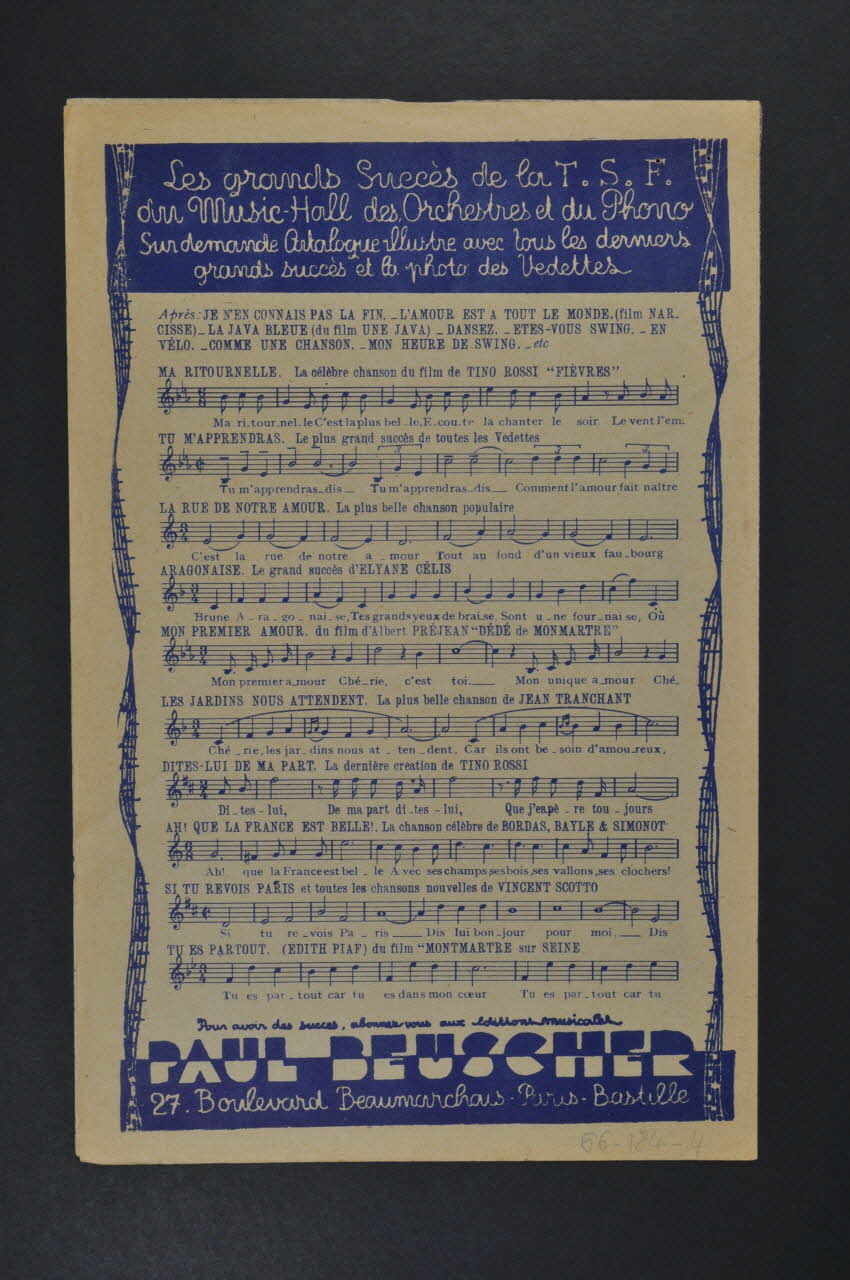 Les grands Succès de la T. S. F.
du Music-Hall des Orchestres et du Phono
Sur demande Catalogue illustre avec tous les derniers
grands succès et la photo des Vedettes
Après: JE N'EN CONNAIS PAS LA FIN. _ L'AMOUR EST A TOUT LE MONDE. (film NAR-
CISSE) _ LA JAVA BLEUE (du film UNE JAVA) _ DANSEZ. _ ETES-VOUS SWING. _ EN
VÉLO. _ COMME UNE CHANSON. _ MON HEURE DE SWING. _ etc
MA RITOURNELLE. La célèbre chanson du film de TINO ROSSI "FIÈVRES"
Ma_ri_tour_nel_le C'est la plus bel_le, E_cou_te la chanter le soir Le vent l'em_
TU M'APPRENDRAS. Le plus grand succès de toutes les Vedettes
Tu m'apprendras_dis_ Tu m'apprendras_dis_ Comment l'amour fait naître
LA RUE DE NOTRE AMOUR. La plus belle chanson populaire
C'est la rue de notre a_mour Tout au fond d'un vieux fau_bourg
ARAGONAISE. Le grand succès d'ELYANE CÉLIS
Brune A_ra_go_nai_se, Tes grands yeux de brai_se, Sont u_ne four_nai_se, Où
MON PREMIER AMOUR. du film d'Albert PRÉJEAN "DÉDÉ de MONMARTRE"
Mon premier a_mour Ché_rie, c'est toi.__ Mon unique a_mour Ché_
LES JARDINS NOUS ATTENDENT. La plus belle chanson de JEAN TRANCHANT
Ché_rie, les jar_dins nous at_ten_dent, Car ils ont be_soin d'amou_reux,
DITES-LUI DE MA PART. La dernière création de TINO ROSSI
Di-tes-lui, De ma part di-tes-lui, Que j'espè-re tou-jours
AH! QUE LA FRANCE EST BELLE!. La chanson célèbre de BORDAS, BAYLE & SIMONOT
Ah! que la France est bel_le Avec ses champs, ses bois, ses vallons, ses clochers!
SI TU REVOIS PARIS et toutes les chansons nouvelles de VINCENT SCOTTO
Si tu re_vois Pa_ris___ Dis lui bon_jour pour moi,__ Dis
TU ES PARTOUT. (EDITH PIAF) du film "MONTMARTRE sur SEINE
Tu es par_tout car tu es dans mon cœur Tu es par_tout car tu
Pour avoir des succes, abonnez-vous aux Editions musicales
PAUL BEUSCHER
27. Boulevard Beaumarchais - Paris - Bastille
66-184-4